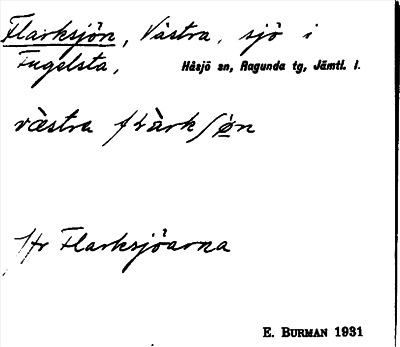 Flarksjön, Västra, sjö i
Fugelsta, Håsjö sn, Ragunda tg, Jämtl. l.
västra
Jfr Flarksjöarna
E. BURMAN 1931